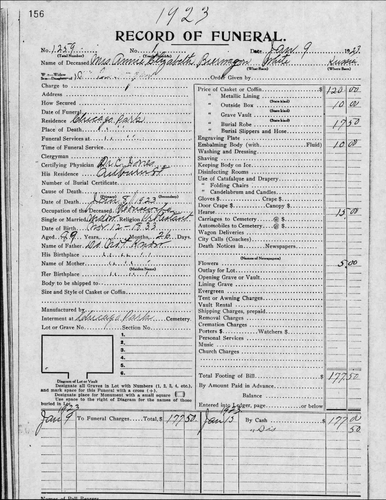 156
1923
RECORD OF FUNERAL.
No. 1259 Date, Jan 9 1923
Name of Deceased Mrs. Annie Elizabeth White
Order Given by
Charge to
Address
How Secured
Date of Funeral
Residence Chicago Park
Place of Death " "
Funeral Services at
Time of Funeral Service
Clergyman
Certifying Physician
His Residence Auburn St
Number of Burial Certificate
Cause of Death
Date of Death 1923
Occupation of the Deceased
Single or Married Religion
Date of Birth Nov. 12 - 1833
Aged 89 Years, Months, 26 Days.
Name of Father Did Not Know
His Birthplace " " "
Name of Mother " " "
(Maiden Name)
Her Birthplace " " "
Body to be shipped to
Size and Style of Casket or Coffin
Manufactured by
Interment at Chicago Park Cemetery.
Lot or Grave No. Section No.
1
2
3
4
5
6
Diagram of Lot or Vault
Designate all Graves in Lot with Numbers (1, 2, 3, 4, etc.),
and mark space for this Funeral with a cross (+).
Designate place for Monument with a small square
Use space to the right of Diagram for names of those
buried in Lot.
Price of Casket or Coffin 120 00
" Metallic Lining
" Outside Box 10 00
" Grave Vault
" Burial Robe 17 50
" Burial Slippers and Hose
Engraving Plate
Embalming Body (with Fluid) 10 00
Washing and Dressing
Shaving
Keeping Body on Ice
Disinfecting Rooms
Use of Catafalque and Drapery
" Folding Chairs
" Candelabrum and Candles
Gloves $ Crape $
Door Crape $ Canopy $
Hearse 15 00
Carriages to Cemetery @ $
Automobiles to Cemetery @ $
Wagon Deliveries
City Calls (Coaches)
Death Notices in Newspapers
(Names of Newspapers)
Flowers 5 00
Outlay for Lot
Opening Grave or Vault
Lining Grave
Evergreen
Tent or Awning Charges
Vault Rental
Shipping Charges, prepaid
Removal Charges
Cremation Charges
Porters $ Watchers $
Personal Services
Music
Church Charges
Total Footing of Bill $ 177 50
By Amount Paid in Advance
Balance
Entered into Ledger, page or below.
1923 1923
Jan 9 To Funeral Charges Total, $ 177 50 Jan 13 By Cash $ 177 00
" Dis 50